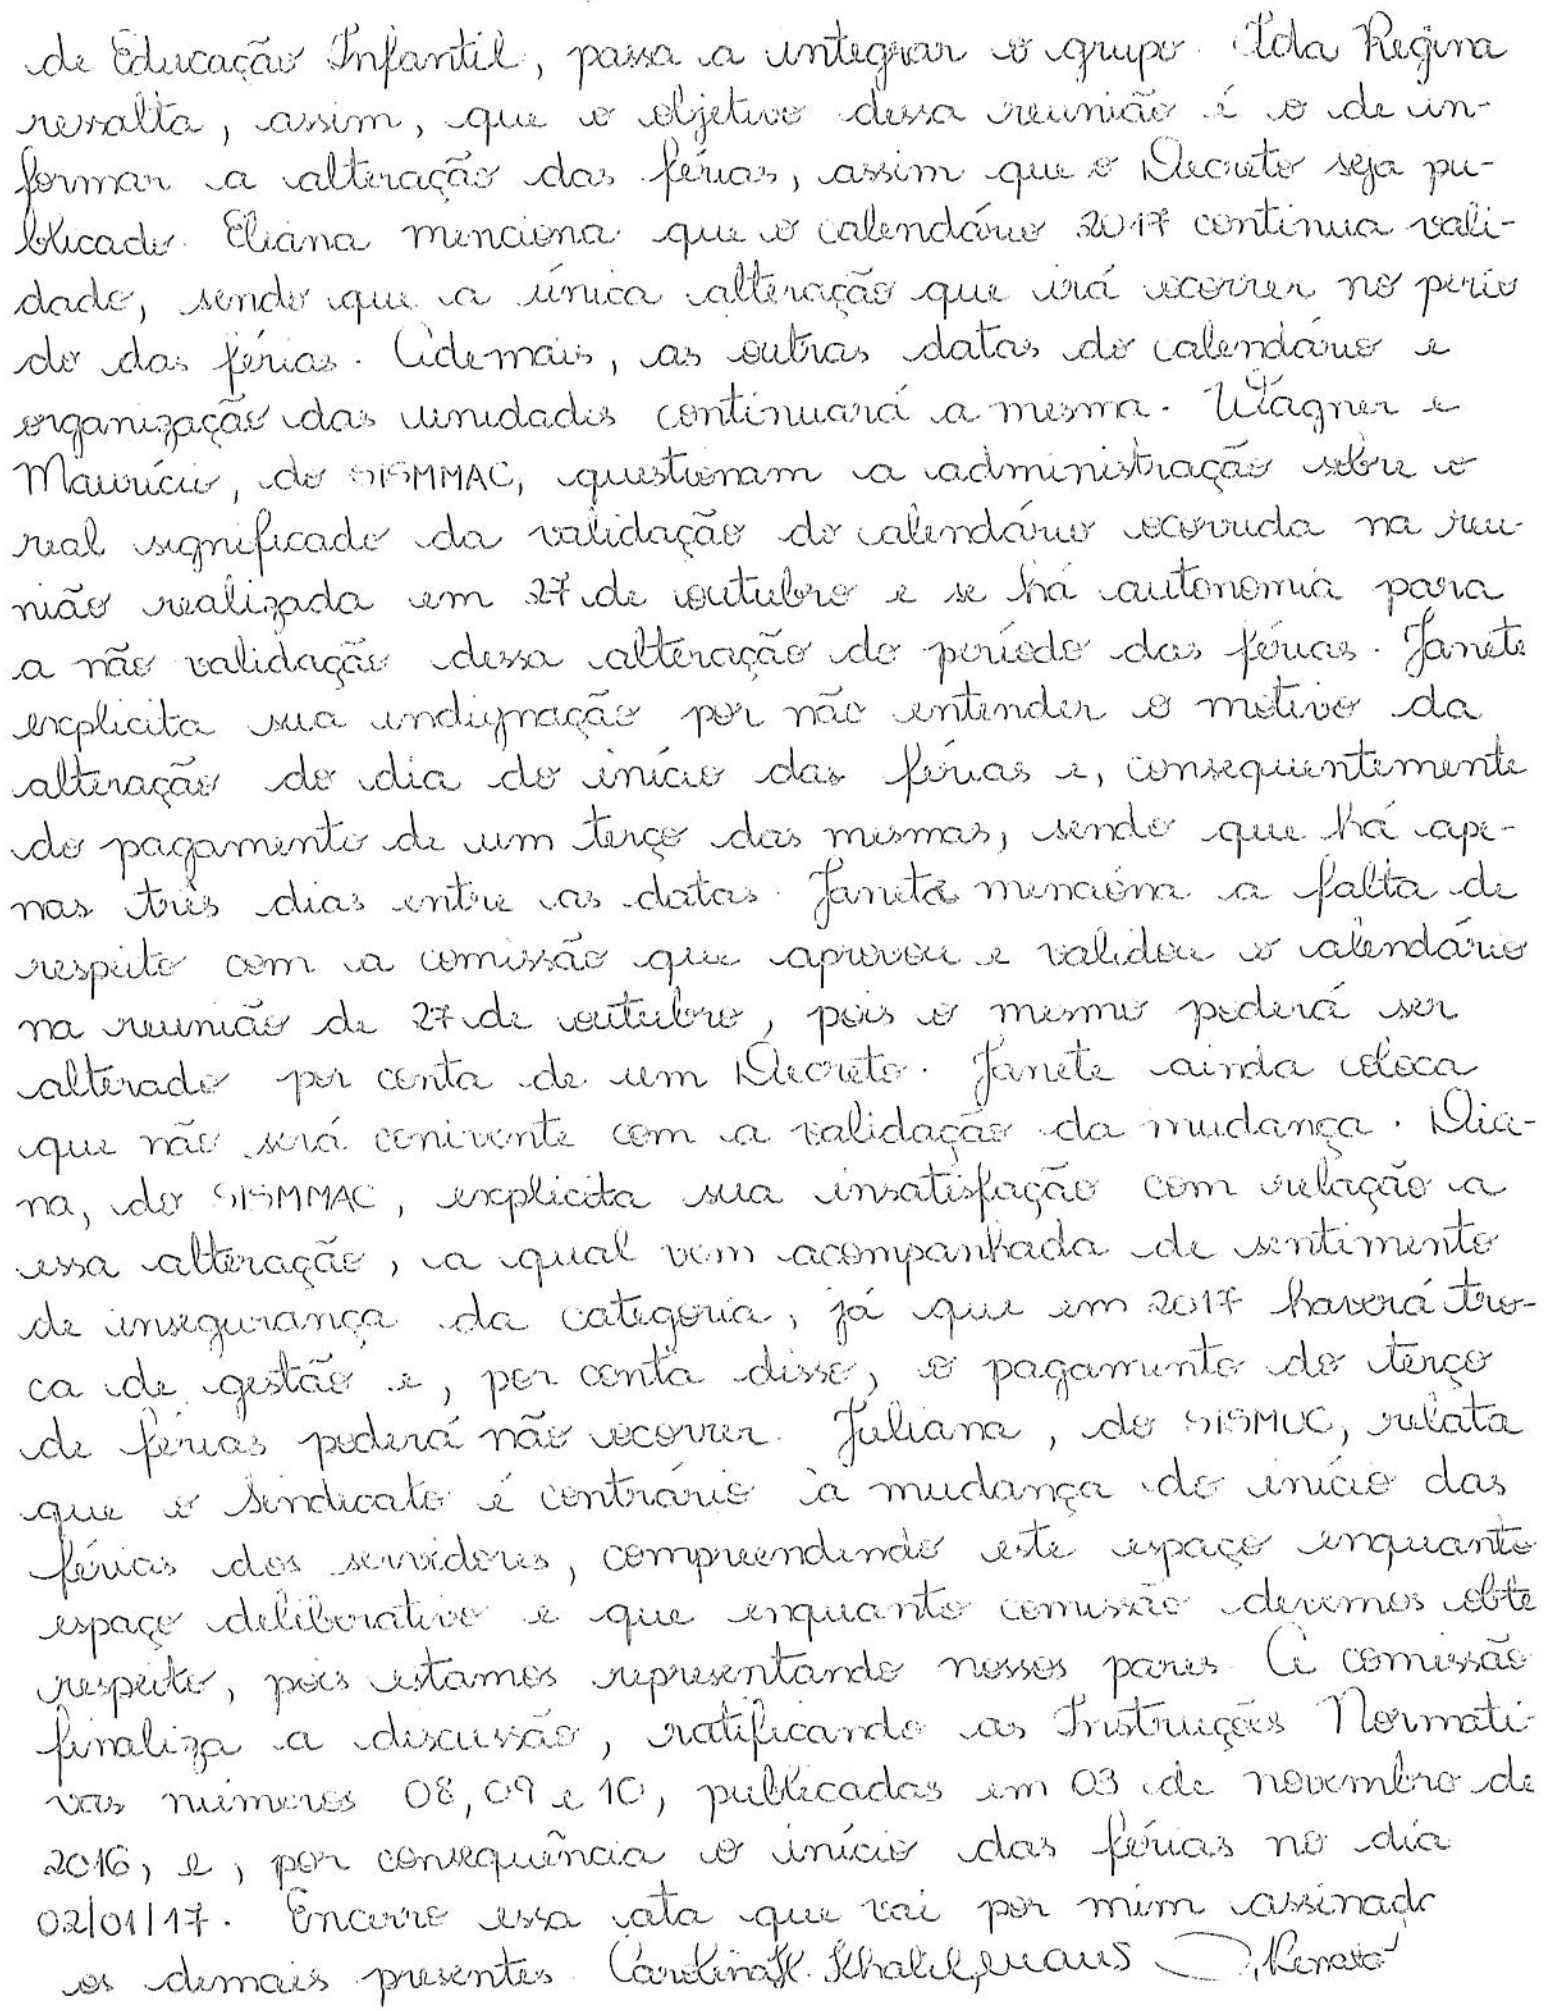 de Educação Infantil, passa a integrar o grupo. Ida Regina
ressalta, assim, que o objetivo dessa reunião é o de in-
formar a alteração das férias, assim que o Decreto seja pu-
blicado. Eliana menciona que o calendário 2017 continua vali-
dado, sendo que a única alteração que irá ocorrer no perío
do das férias. Ademais, as outras datas do calendário e
organização das unidades continuará a mesma. Wagner e
Maurício, do SISMMAC, questionam a administração sobre o
real significado da validação do calendário ocorrida na reu-
nião realizada em 27 de outubro e se há autonomia para
a não validação dessa alteração do período das férias. Janete
explicita sua indignação por não entender o motivo da
alteração do dia do início das férias e, consequentemente
do pagamento de um terço das mesmas, sendo que há ape-
nas três dias entre as datas. Janete menciona a falta de
respeito com a comissão que aprovou e validou o calendário
na reunião de 27 de outubro, pois o mesmo poderá ser
alterado por conta de um Decreto. Janete ainda coloca
que não será conivente com a validação da mudança. Dia-
na, do SISMMAC, explicita sua insatisfação com relação a
essa alteração, a qual vem acompanhada de sentimento
de insegurança da categoria, já que em 2017 haverá tro-
ca de gestão e, por conta disso, o pagamento do terço
de férias poderá não ocorrer. Juliana, do SISMUC, relata
que o Sindicato é contrário à mudança do início das
férias dos servidores, compreendendo este espaço enquanto
espaço deliberativo e que enquanto comissão devemos obte
respeito, pois estamos representando nossos pares. A comissão
finaliza a discussão, ratificando as Instruções Normati-
vas números 08, 09 e 10, publicadas em 03 de novembro de
2016, e, por consequência o início das férias no dia
02/01/17. Encerro essa ata que vai por mim assinado
os demais presentes. Carolina K. Khalil, Renata